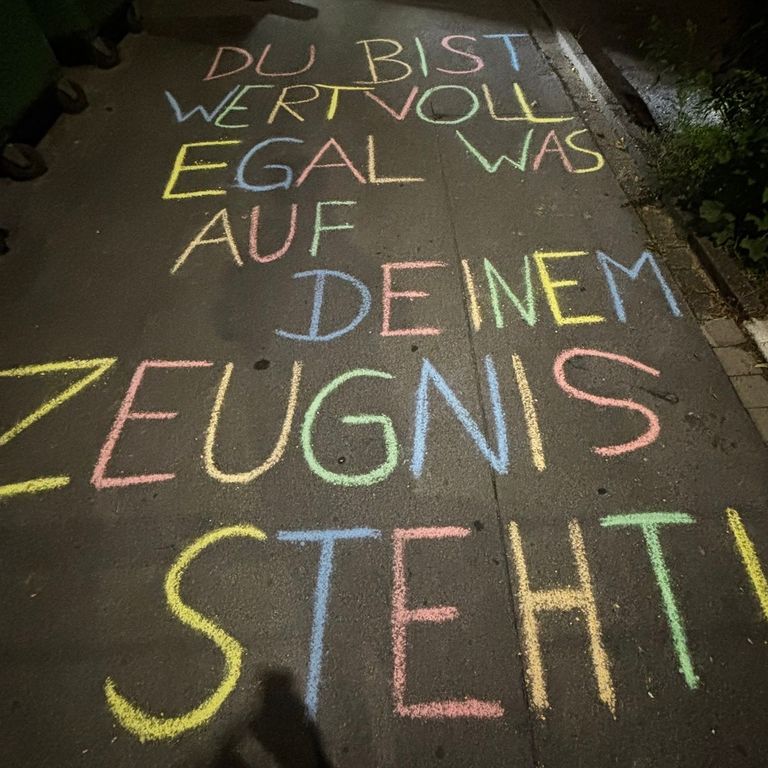 DU BIST
WERTVOLL
EGAL WAS
AUF
DEINEM
ZEUGNIS
STEHT!